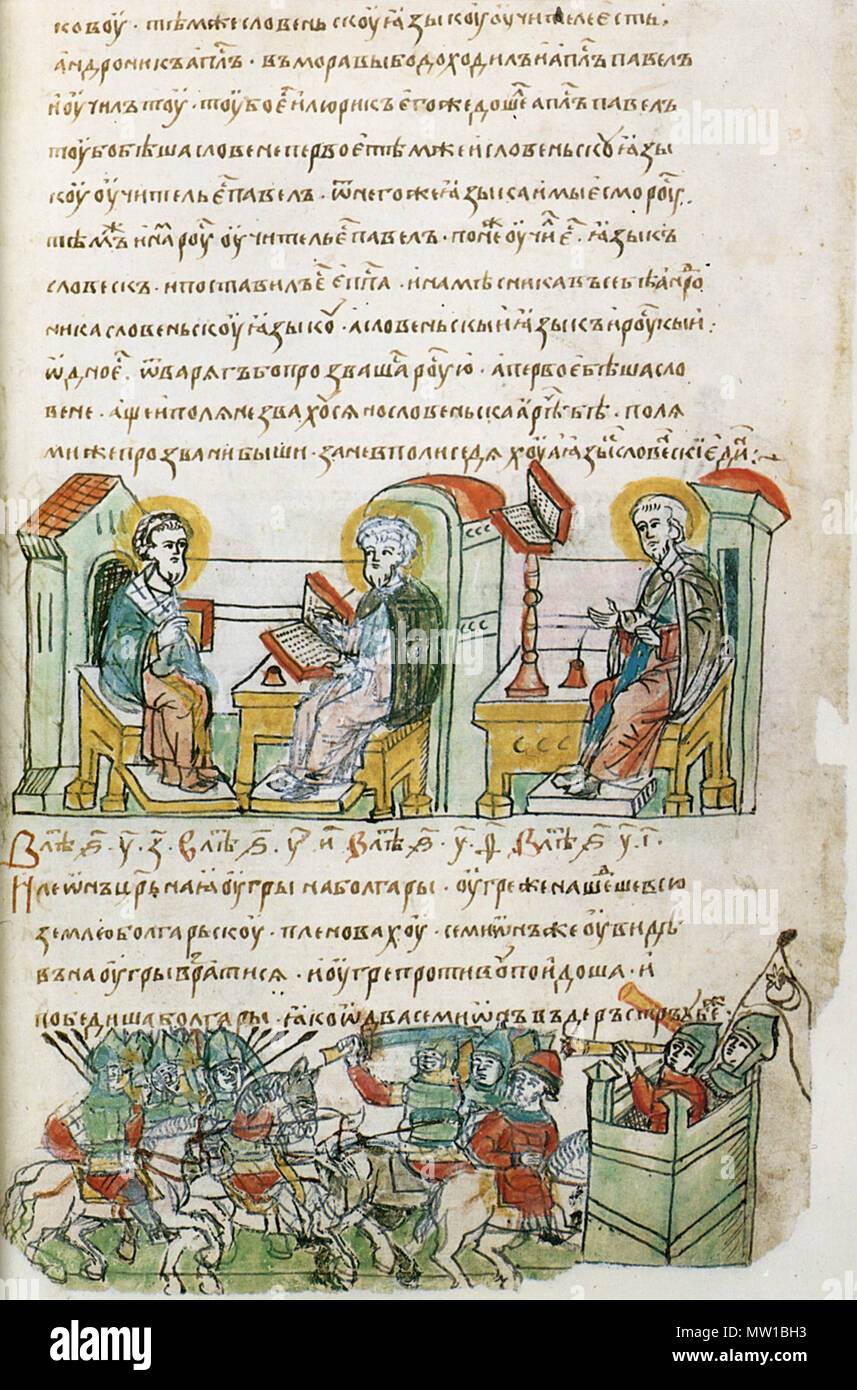 ковоу · тѣмже словеньскоу ꙗзыкоу оучитель есть ·
андроникъ апл҃ъ · въ моравы бо доходилъ и апл҃ъ павелъ
и оучилъ тоу · тоу бо е҃ и люрикъ егоже доше апл҃ъ павелъ
тоу бо бѣша словене первое тѣмже и словеньскоу ꙗзы
коу оучитель е҃ павелъ · ѿ негоже ꙗзыка и мы есмо роу҃
тѣмж҃ъ и на҃ роу҃ оучитель е҃ павелъ · понеж҃ оучил҃ е҃ · ꙗзыкъ
словескъ · и поставилъ е҃ еп҃па · и намѣсника въ себѣ андро
ника словеньскоу ꙗзыкоу · а словеньскыи ꙗзыкъ и роускыи :
ѡдно е҃ · ѿ варягъ бо прозваша҃ роу҃ю · а первое бѣша сло
вене · аще и поляне звахоуся но словеньскаа рѣ҃ бѣ · поля
ми же прозвани быши · зане в поли седяхоу а ꙗзы҃ словенскіи еди҃ :
В лѣ҃ ҂ѕ · у҃ · з҃ · В лѣ҃ ҂ѕ · у҃ и҃ В лѣ҃ ҂ѕ · у҃ · ѳ҃ В лѣ҃ ҂ѕ у҃ · і҃ ·
И леѡнъ цр҃ь наꙗ оугры на болгары · оугре же нашедше всю
землю болгарьскоу · пленовахоу · семиѡнъ же оувидѣ
въ на оугры вратися · и оугре противоу поидоша · и
победиша болгары · ꙗко ѡдва семиѡнъ въ деръстръ вбѣ҃ ·
alamy
Image ID: MW1BH3
www.alamy.com